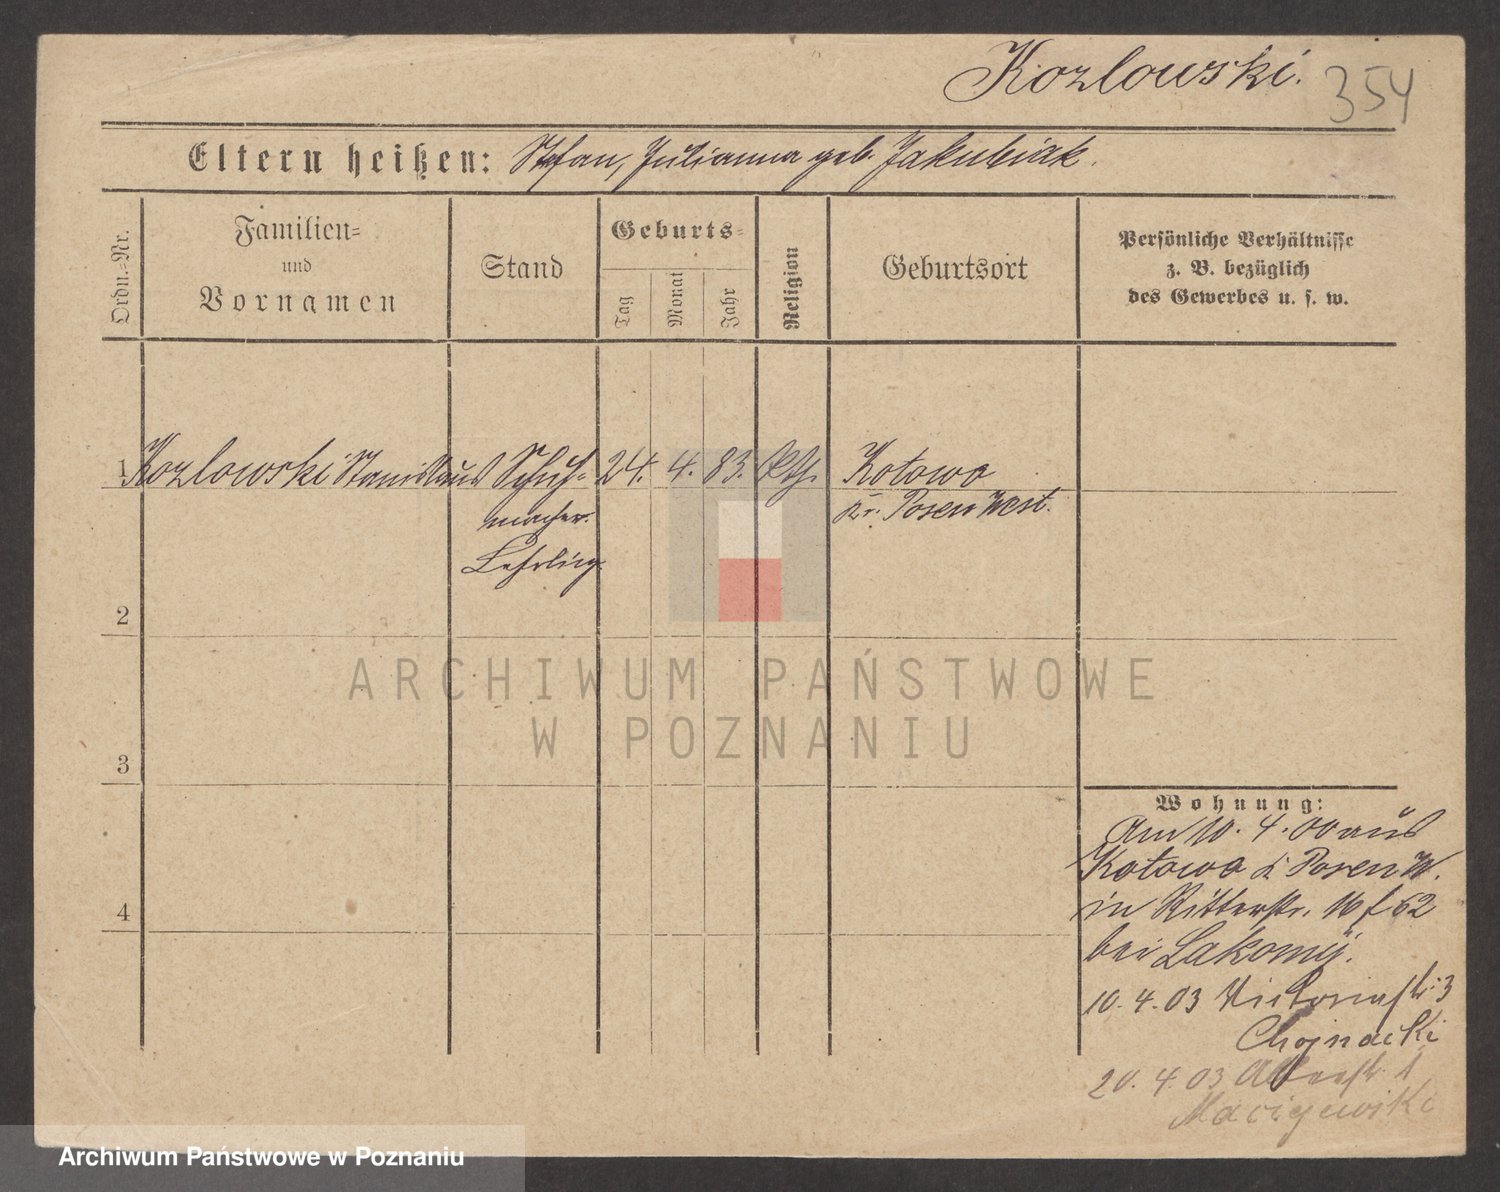 Kozlowski. 354
Eltern heißen: Stefan, Julianna geb. Jakubiak.
Ordn.-Nr.
Familien-
und
Vornamen
Stand
Geburts-
Tag
Monat
Jahr
Religion
Geburtsort
Persönliche Verhältnisse
z. B. bezüglich
des Gewerbes u. s. w.
1 Kozlowski Stanislaus Schuh- 24. 4. 83. kth. Kotowo
macher. Kr. Posen West.
Lehrling
2
3
4
Wohnung:
Am 10. 4. 00 aus
Kotowo Posen W.
in Ritterstr. 16 62
bei Lakomy.
10. 4. 03 Victoriastr. 3
Chojnacki
20. 4. 03 1
Maciejewski
ARCHIWUM PAŃSTWOWE
W POZNANIU
Archiwum Państwowe w Poznaniu